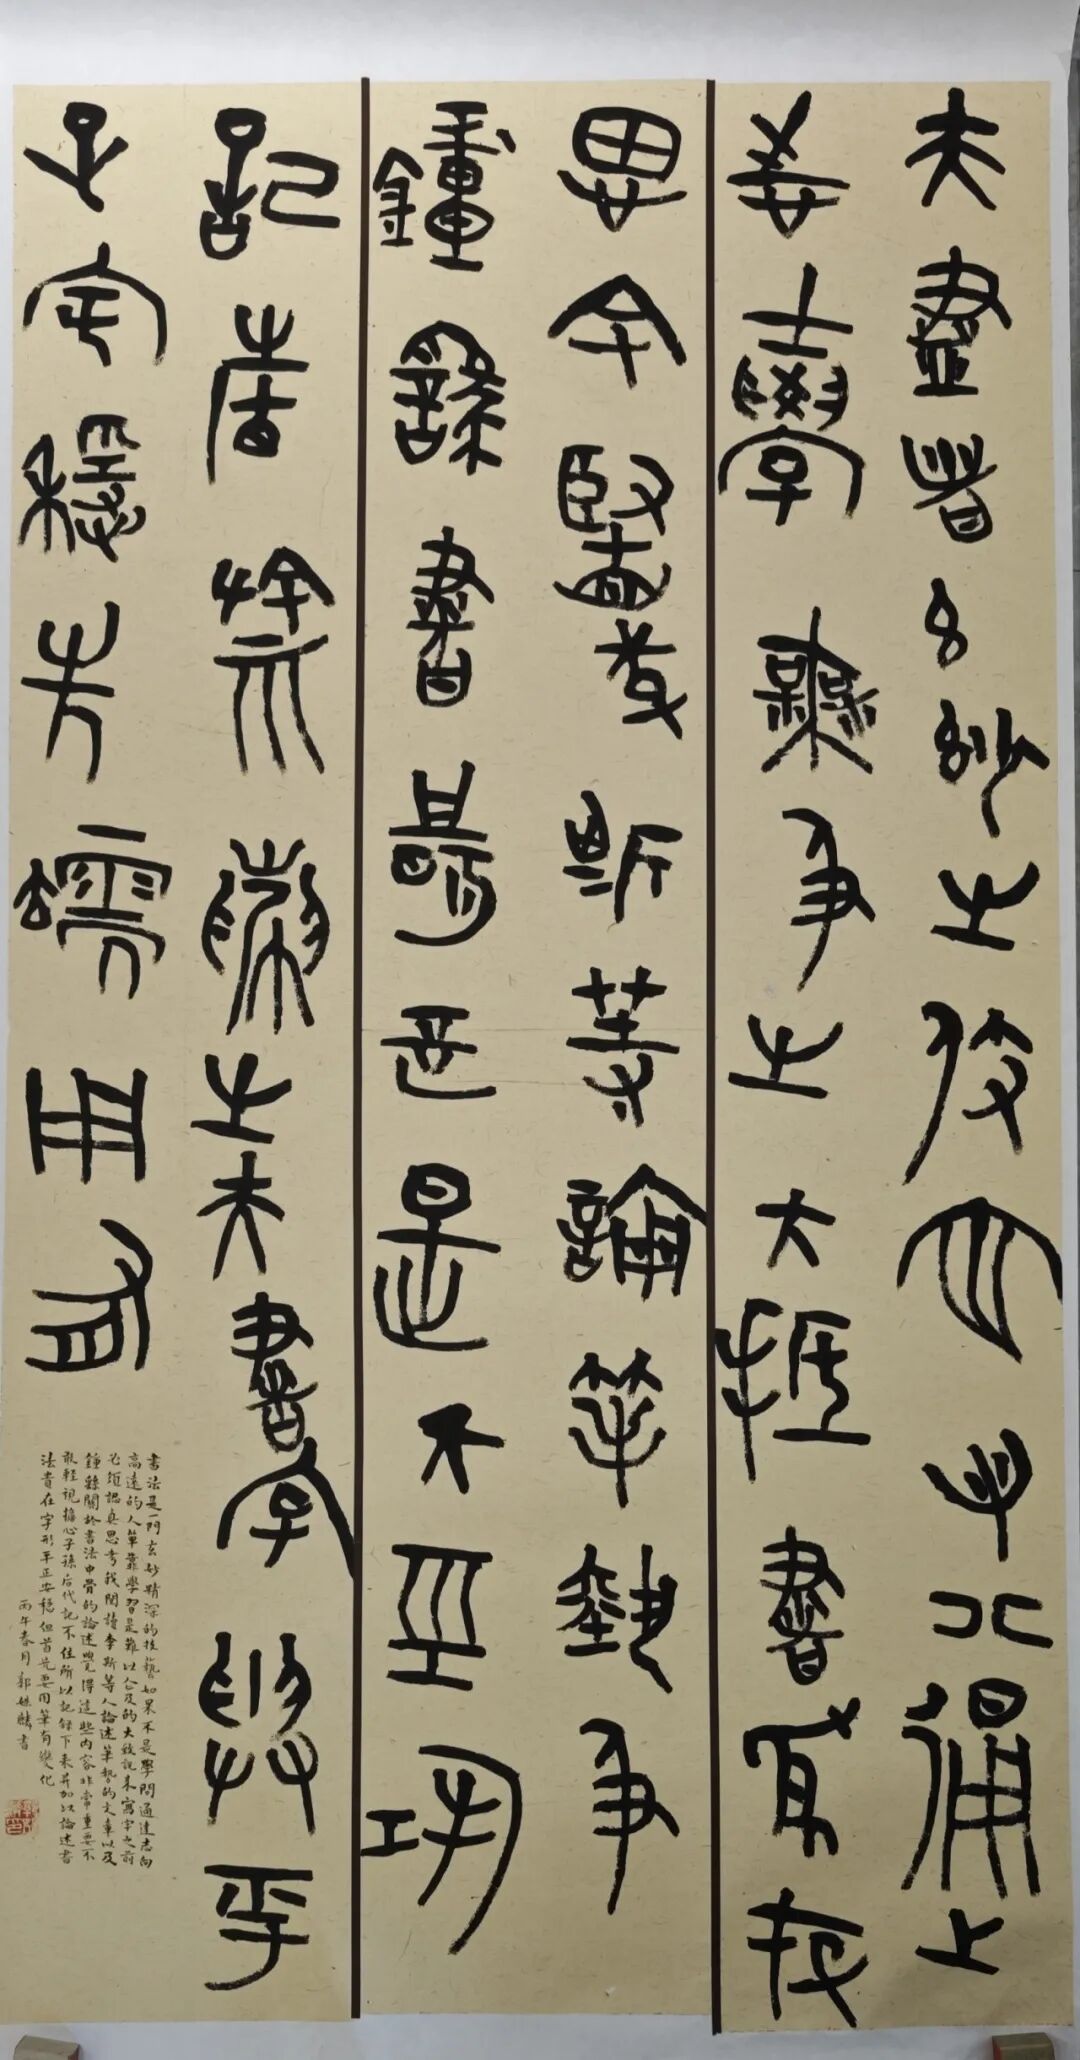 夫書者玄妙之伎也若非通人
志士學無及之大抵書須存
思余覽李斯等論筆勢及
鍾繇書骨甚是不輕恐
記故敘而之夫書字貴平
正安穩先須用有
書法是一門玄妙精深的技藝如果不是學問通達志向
高遠的人單靠學習是難以企及的大致說來寫字之前
必須認真思考我閱讀李斯等人論述筆勢的文章以及
鍾繇關於書法中骨的論述覺得這些內容非常重要不
敢輕視擔心子孫后代記不住所以記錄下來并加以論述書
法貴在字形平正安穩但首先要用筆有變化
丙午春月郭書